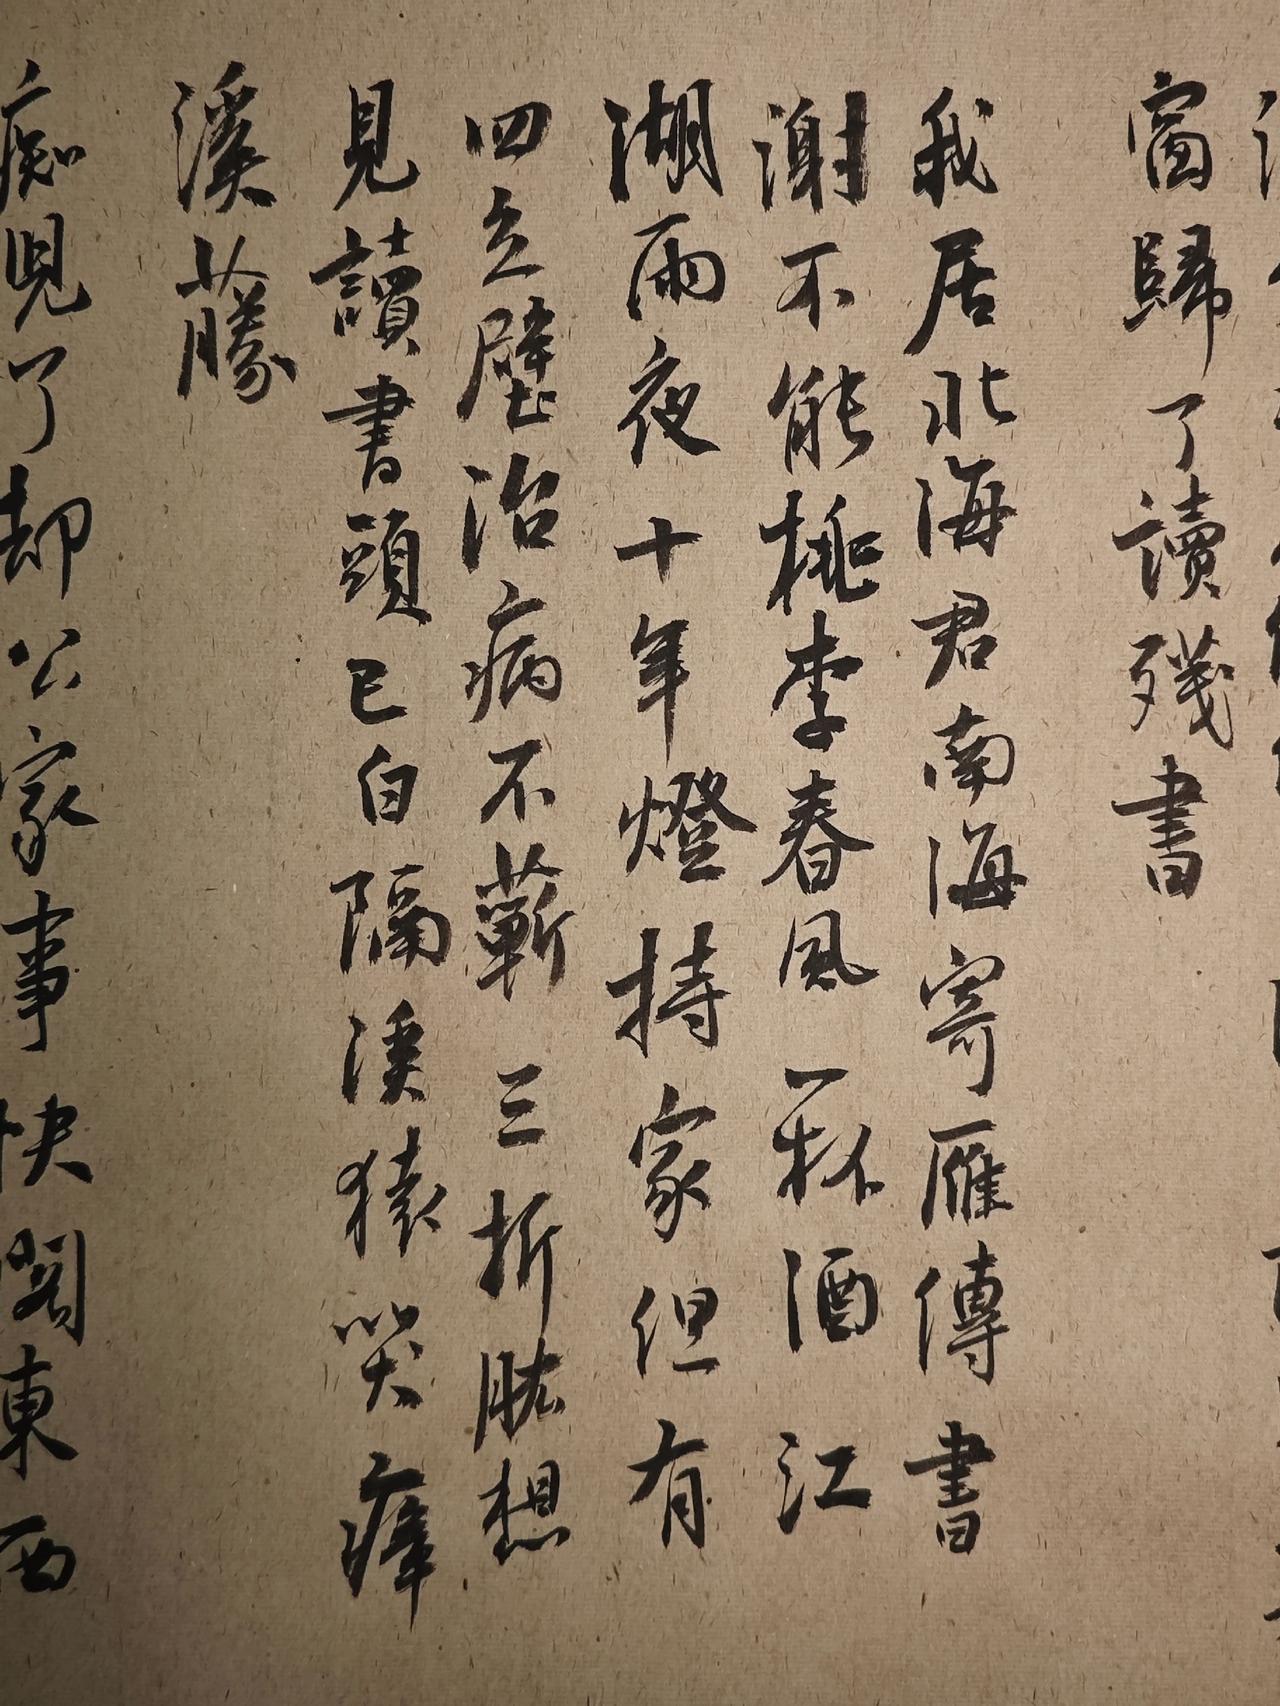 窗歸了讀殘書
我居北海君南海寄雁傳書
謝不能桃李春風一杯酒江
湖雨夜十年燈持家但有
四立壁治病不蘄三折肱想
見讀書頭已白隔溪猿哭瘴
溪藤
痴兒了却公家事快閣東西